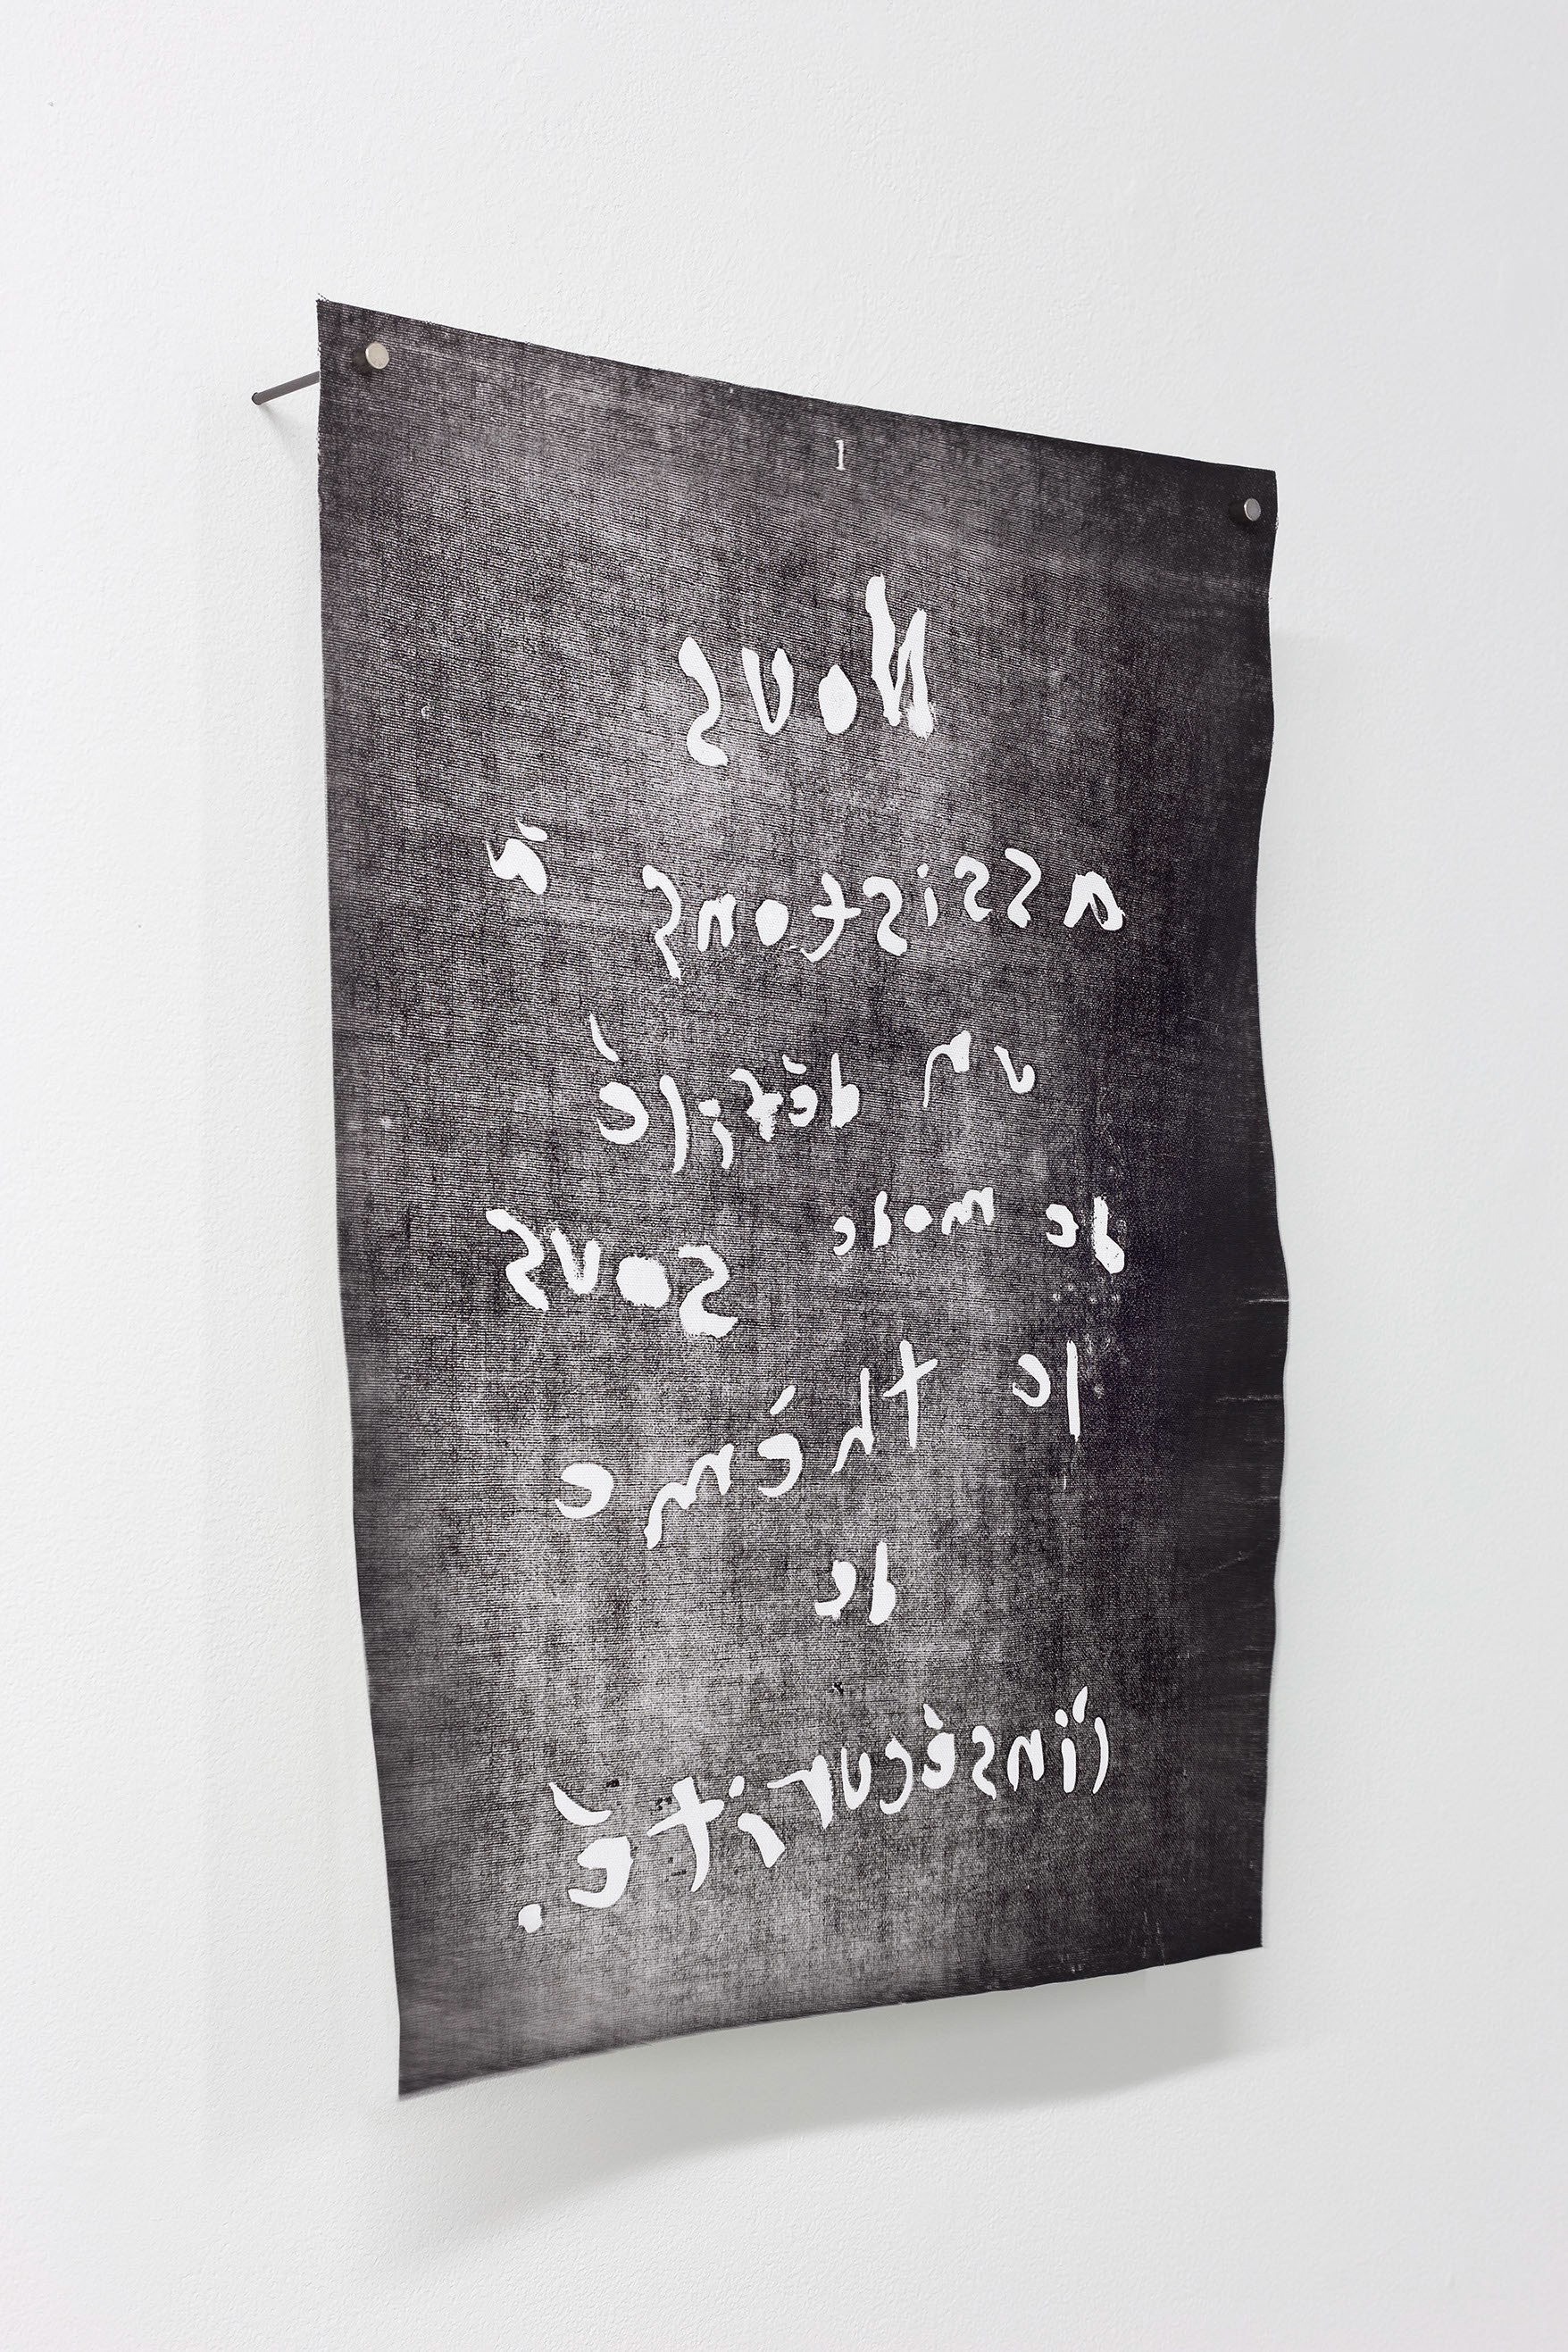 1
Nous
assistons à
un défilé
de mode sous
le thème
de
l'insécurité.